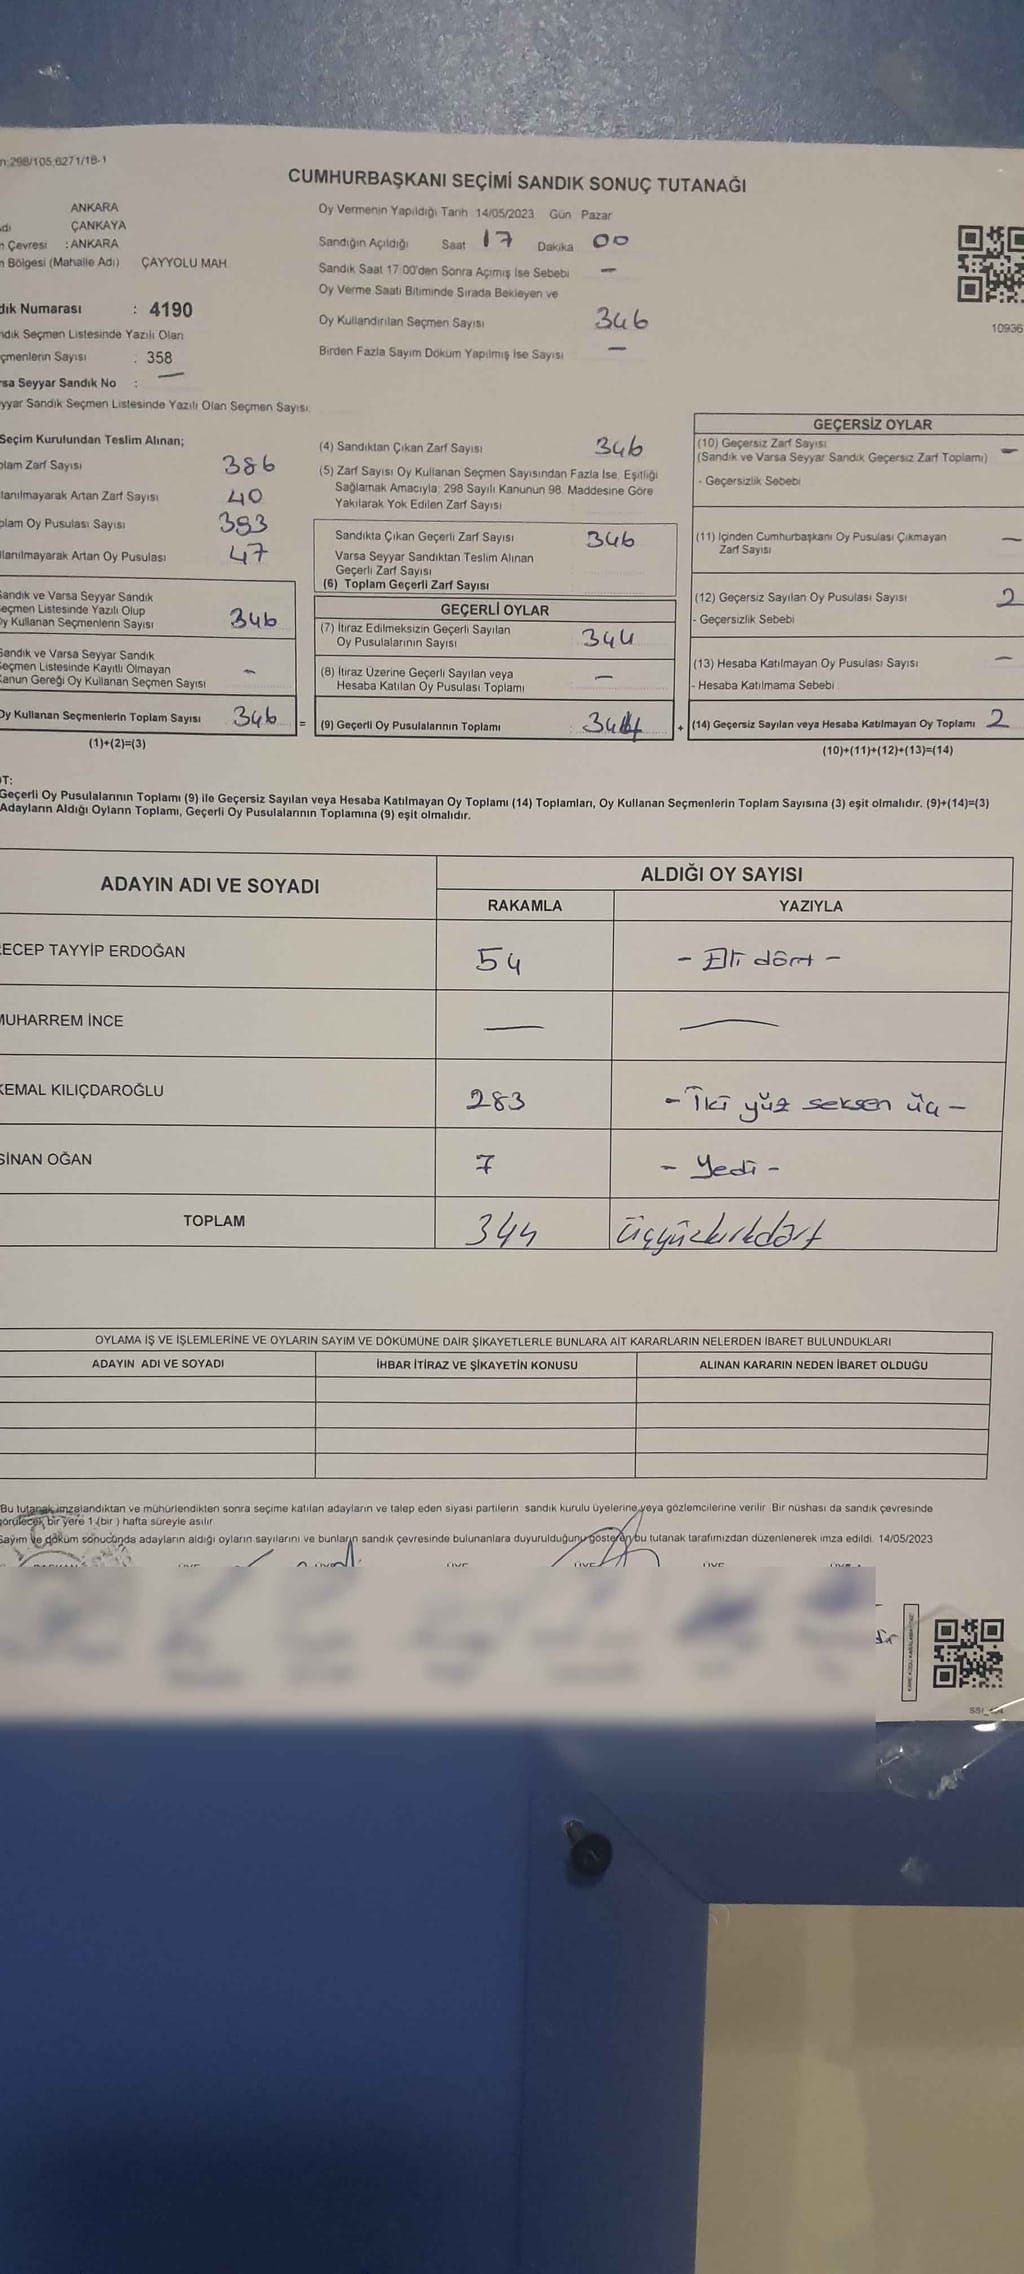 298/105,6271/18-1
CUMHURBAŞKANI SEÇİMİ SANDIK SONUÇ TUTANAĞI
ANKARA
ÇANKAYA
Çevresi : ANKARA
Bölgesi (Mahalle Adı) ÇAYYOLU MAH.
Numarası : 4190
Seçmen Listesinde Yazılı Olan
Sayısı : 358
Seyyar Sandık No : —
Sandık Seçmen Listesinde Yazılı Olan Seçmen Sayısı:
Oy Vermenin Yapıldığı Tarih : 14/05/2023 Gün Pazar
Sandığın Açıldığı Saat 17 Dakika 00
Sandık Saat 17:00'den Sonra Açımış İse Sebebi —
Oy Verme Saati Bitiminde Sırada Bekleyen ve
Oy Kullandırılan Seçmen Sayısı 346
Birden Fazla Sayım Döküm Yapılmış İse Sayısı —
10936
Seçim Kurulundan Teslim Alınan;
Zarf Sayısı 386
Artan Zarf Sayısı 40
Oy Pusulası Sayısı 393
Artan Oy Pusulası 47
Sandık ve Varsa Seyyar Sandık
Listesinde Yazılı Olup
Kullanan Seçmenlerin Sayısı 346
Sandık ve Varsa Seyyar Sandık
Seçmen Listesinde Kayıtlı Olmayan
Kanun Gereği Oy Kullanan Seçmen Sayısı —
Oy Kullanan Seçmenlerin Toplam Sayısı 346 =
(1)+(2)=(3)
(4) Sandıktan Çıkan Zarf Sayısı 346
(5) Zarf Sayısı Oy Kullanan Seçmen Sayısından Fazla İse, Eşitliği
Sağlamak Amacıyla; 298 Sayılı Kanunun 98. Maddesine Göre
Yakılarak Yok Edilen Zarf Sayısı
Sandıkta Çıkan Geçerli Zarf Sayısı 346
Varsa Seyyar Sandıktan Teslim Alınan
Geçerli Zarf Sayısı
(6) Toplam Geçerli Zarf Sayısı
GEÇERLİ OYLAR
(7) İtiraz Edilmeksizin Geçerli Sayılan
Oy Pusulalarının Sayısı 344
(8) İtiraz Üzerine Geçerli Sayılan veya
Hesaba Katılan Oy Pusulası Toplamı —
(9) Geçerli Oy Pusulalarının Toplamı : 344 +
GEÇERSİZ OYLAR
(10) Geçersiz Zarf Sayısı
(Sandık ve Varsa Seyyar Sandık Geçersiz Zarf Toplamı) —
- Geçersizlik Sebebi
(11) İçinden Cumhurbaşkanı Oy Pusulası Çıkmayan
Zarf Sayısı —
(12) Geçersiz Sayılan Oy Pusulası Sayısı 2
- Geçersizlik Sebebi
(13) Hesaba Katılmayan Oy Pusulası Sayısı —
- Hesaba Katılmama Sebebi
(14) Geçersiz Sayılan veya Hesaba Katılmayan Oy Toplamı 2
(10)+(11)+(12)+(13)=(14)
Geçerli Oy Pusulalarının Toplamı (9) ile Geçersiz Sayılan veya Hesaba Katılmayan Oy Toplamı (14) Toplamları, Oy Kullanan Seçmenlerin Toplam Sayısına (3) eşit olmalıdır. (9)+(14)=(3)
Adayların Aldığı Oyların Toplamı, Geçerli Oy Pusulalarının Toplamına (9) eşit olmalıdır.
ADAYIN ADI VE SOYADI ALDIĞI OY SAYISI
RAKAMLA YAZIYLA
ECEP TAYYİP ERDOĞAN 54 - Elli dört -
MUHARREM İNCE — —
KEMAL KILIÇDAROĞLU 283 - İki yüz seksen üç -
SİNAN OĞAN 7 - Yedi -
TOPLAM 344 üçyüzkırkdört
OYLAMA İŞ VE İŞLEMLERİNE VE OYLARIN SAYIM VE DÖKÜMÜNE DAİR ŞİKAYETLERLE BUNLARA AİT KARARLARIN NELERDEN İBARET BULUNDUKLARI
ADAYIN ADI VE SOYADI İHBAR İTİRAZ VE ŞİKAYETİN KONUSU ALINAN KARARIN NEDEN İBARET OLDUĞU
Bu tutanak imzalandıktan ve mühürlendikten sonra seçime katılan adayların ve talep eden siyasi partilerin sandık kurulu üyelerine veya gözlemcilerine verilir. Bir nüshası da sandık çevresinde
görülecek bir yere 1 (bir ) hafta süreyle asılır.
Sayım ve döküm sonucunda adayların aldığı oyların sayılarını ve bunların sandık çevresinde bulunanlara duyurulduğunu gösteren bu tutanak tarafımızdan düzenlenerek imza edildi. 14/05/2023